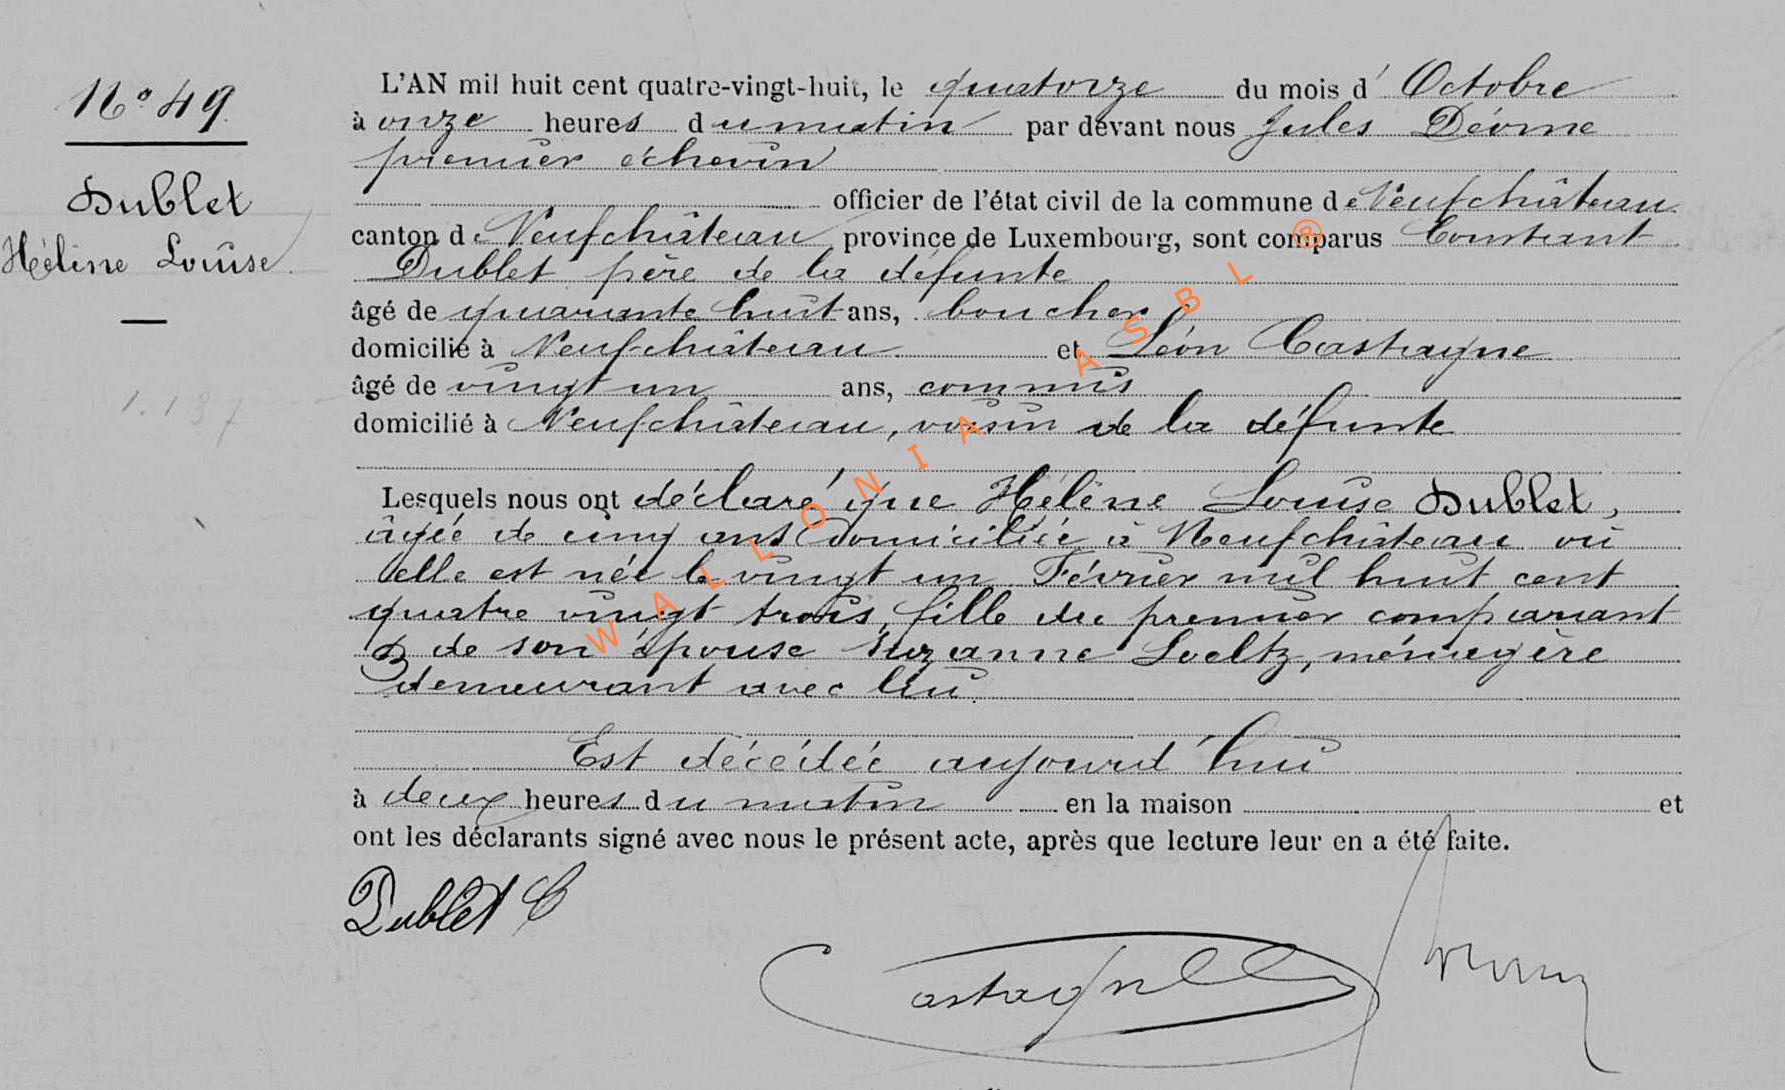 N° 49
Dublet
Hélène Louise
L'AN mil huit cent quatre-vingt-huit, le quatorze du mois d' Octobre
à onze heures du matin par devant nous Jules
premier échevin
officier de l'état civil de la commune de Neufchâteau
canton de Neufchâteau province de Luxembourg, sont comparus Constant
Dublet père de la défunte
âgé de quarante huit ans, boucher
domicilié à Neufchâteau et Léon Castagne
âgé de vingt un ans, commis
domicilié à Neufchâteau, voisin de la défunte
Lesquels nous ont déclaré que Hélène Louise Dublet,
âgée de cinq ans domiciliée à Neufchâteau où
elle est née le vingt un Février mil huit cent
quatre vingt trois, fille du premier comparant
& de son épouse Suzanne Loeltz, ménagère
demeurant avec lui.
Est décédée aujourd'hui
à deux heures du matin en la maison et
ont les déclarants signé avec nous le présent acte, après que lecture leur en a été faite.
Dublet C
Castagne
WALLONIA ASBL ®